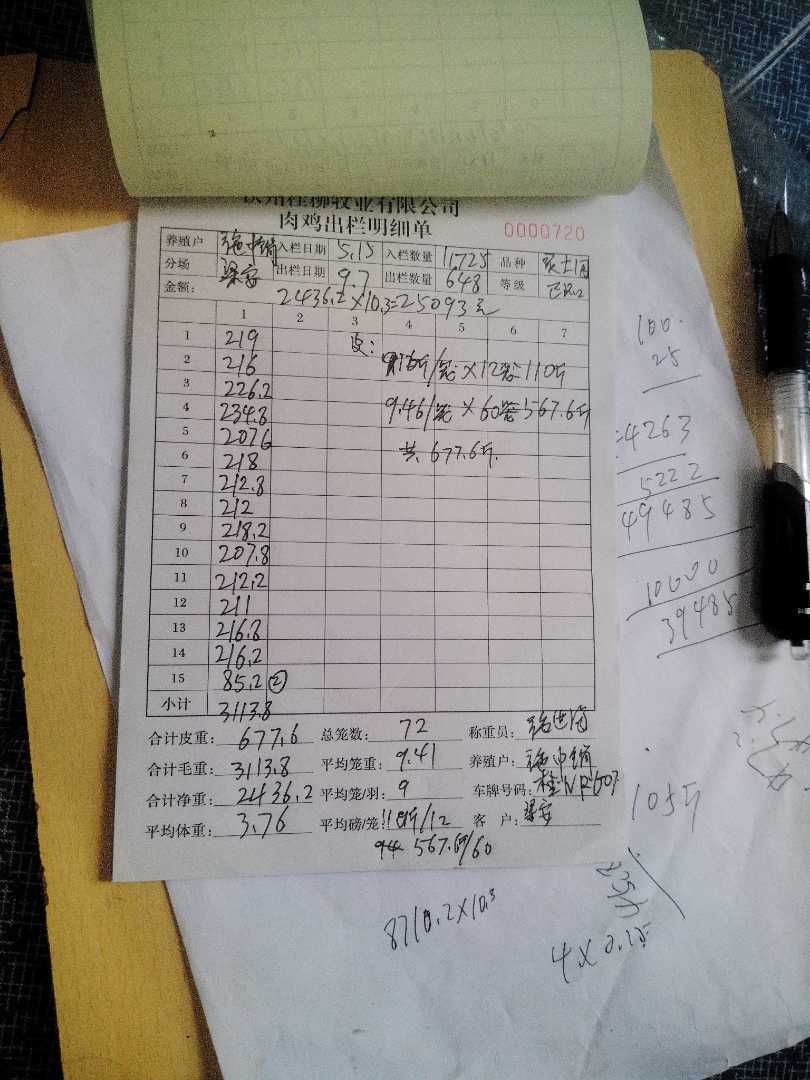 牧业有限公司
肉鸡出栏明细单
0000720
养殖户 入栏日期 5.15 入栏数量 11725 品种
分场 梁安 出栏日期 9.7 出栏数量 648 等级
金额: 2436.2×10.3=25093元
1 2 3 4 5 6 7
1 219 皮:
2 216 ×12笼=110斤
3 226.2
4 234.8 9.46/笼×60笼=567.6斤
5 207.6
6 218 共677.6斤.
7 212.8
8 212
9 218.2
10 207.8
11 212.2
12 211
13 216.8
14 216.2
15 85.2 ②
小计 3113.8
合计皮重: 677.6 总笼数: 72 称重员:
合计毛重: 3113.8 平均笼重: 9.41 养殖户:
合计净重: 2436.2 平均笼/羽: 9 车牌号码:
平均体重: 3.76 平均磅/笼: 110斤/12 客 户: 梁安
567.6斤/60
100.
25
4263
5222
49485
10000
39485
105斤
8710.2×10.3